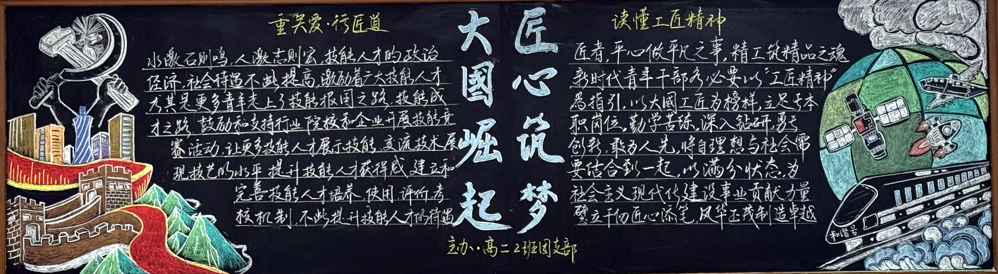 重关爱·行匠道
水激石则鸣,人激志则宏,技能人才的政治
经济,社会待遇不断提高,激励着广大技能人才
尤其是更多青年走上了技能报国之路,技能成
才之路,鼓励和支持行业院校和企业开展技能竞
赛活动,让更多技能人才展示技能,交流技术,展
现技艺的水平,提升技能人才获得感,建立和
完善技能人才培养,使用,评价,考
核机制,不断提升技能人才的待遇
大國崛起
匠心筑梦
读懂工匠精神
匠者,平心做平凡之事,精工筑精品之魂
新时代青年干部务必要以“工匠精神”
为指引,以大國工匠为榜样,立足本
职岗位,勤学苦练,深入钻研,勇于
创新,敢为人先,将自理想与社会需
要结合到一起,以满分状态,为
社会主义现代化建设事业贡献力量
壁立千仞匠心添笔,风华正茂制造卓越
主办·高二2班团支部
和谐号